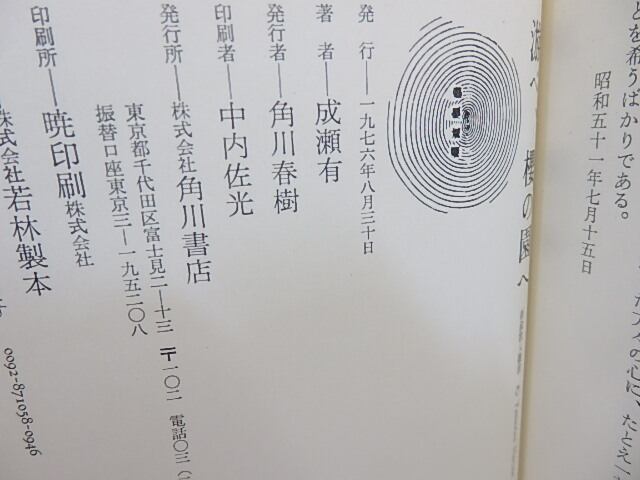 とを希うばかりである。
昭和五十一年七月十五日
た人々の心に、たとえ一
游べ、櫻の園へ
発行――一九七六年八月三十日
著者――成瀬有
発行者――角川春樹
印刷者――中内佐光
発行所――株式会社角川書店
東京都千代田区富士見二―十三 〒一〇二 電話〇三
振替口座東京三―一九五二〇八
印刷所――暁印刷株式会社
株式会社若林製本
0092-871058-0946